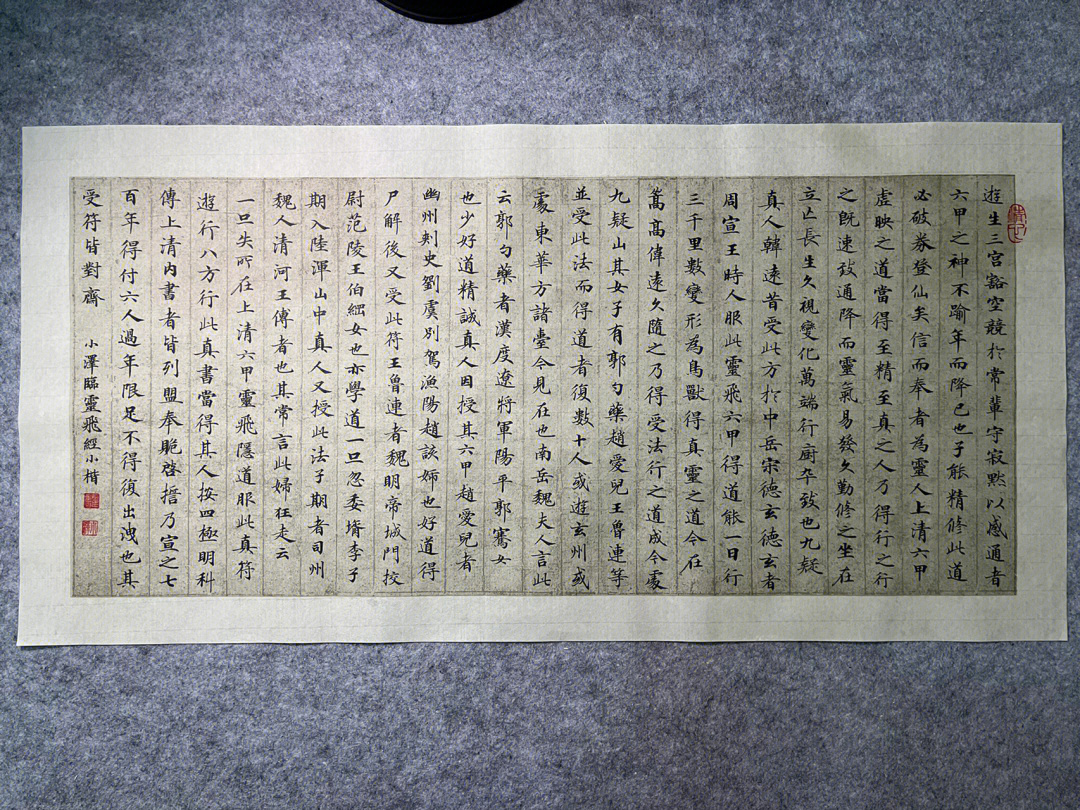 遊生三宮豁空競於常輩守寂默以感通者
六甲之神不踰年而降已也子能精修此道
必破券登仙矣信而奉者為靈人上清六甲
虛映之道當得至精至真之人乃得行之行
之既速致通降而靈氣易發久勤修之坐在
立亡長生久視變化萬端行廚卒致也九疑
真人韓遠昔受此方於中岳宋德玄德玄者
周宣王時人服此靈飛六甲得道能一日行
三千里數變形為鳥獸得真靈之道今在
嵩高偉遠久隨之乃得受法行之道成今處
九疑山其女子有郭勺藥趙愛兒王魯連等
並受此法而得道者復數十人或遊玄州或
處東華方諸臺今見在也南岳魏夫人言此
云郭勺藥者漢度遼將軍陽平郭騫女
也少好道精誠真人因授其六甲趙愛兒者
幽州刺史劉虞別駕漁陽趙該姊也好道得
尸解後又受此符王魯連者魏明帝城門校
尉范陵王伯綱女也亦學道一旦忽委壻李子
期入陸渾山中真人又授此法子期者司州
魏人清河王傳者也其常言此婦狂走云
一旦失所在上清六甲靈飛隱道服此真符
遊行八方行此真書當得其人按四極明科
傳上清內書者皆列盟奉贶啓誓乃宣之七
百年得付六人過年限足不得復出洩也其
受符皆對齋 小澤臨靈飛經小楷